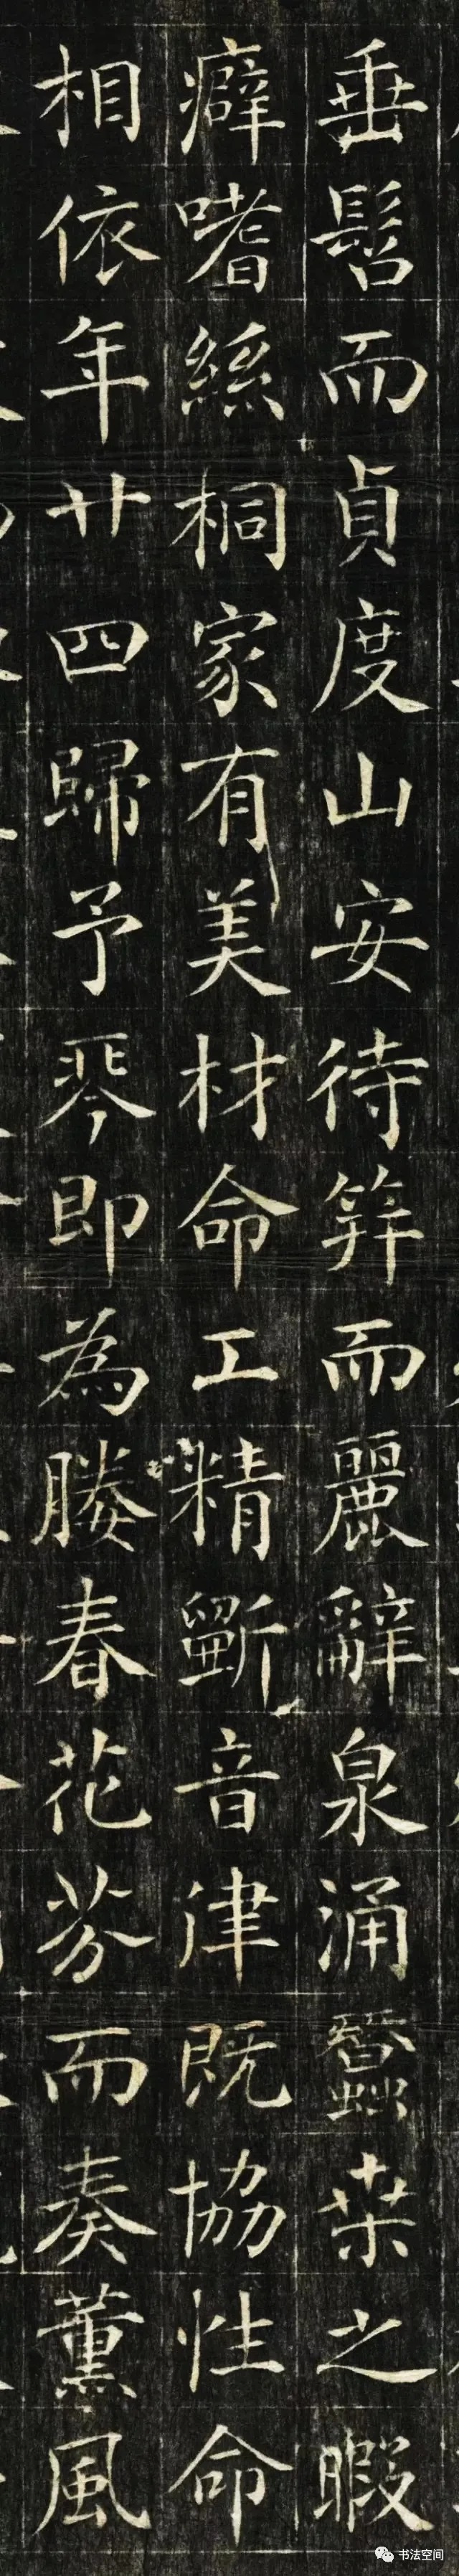 垂髫而貞度山安待筓而麗辭泉涌蠶桒之暇
癖嗜絲桐家有美材命工精斵音律既協性命
相依年廿四歸予琴即為媵春花芬而奏薰風
书法空间